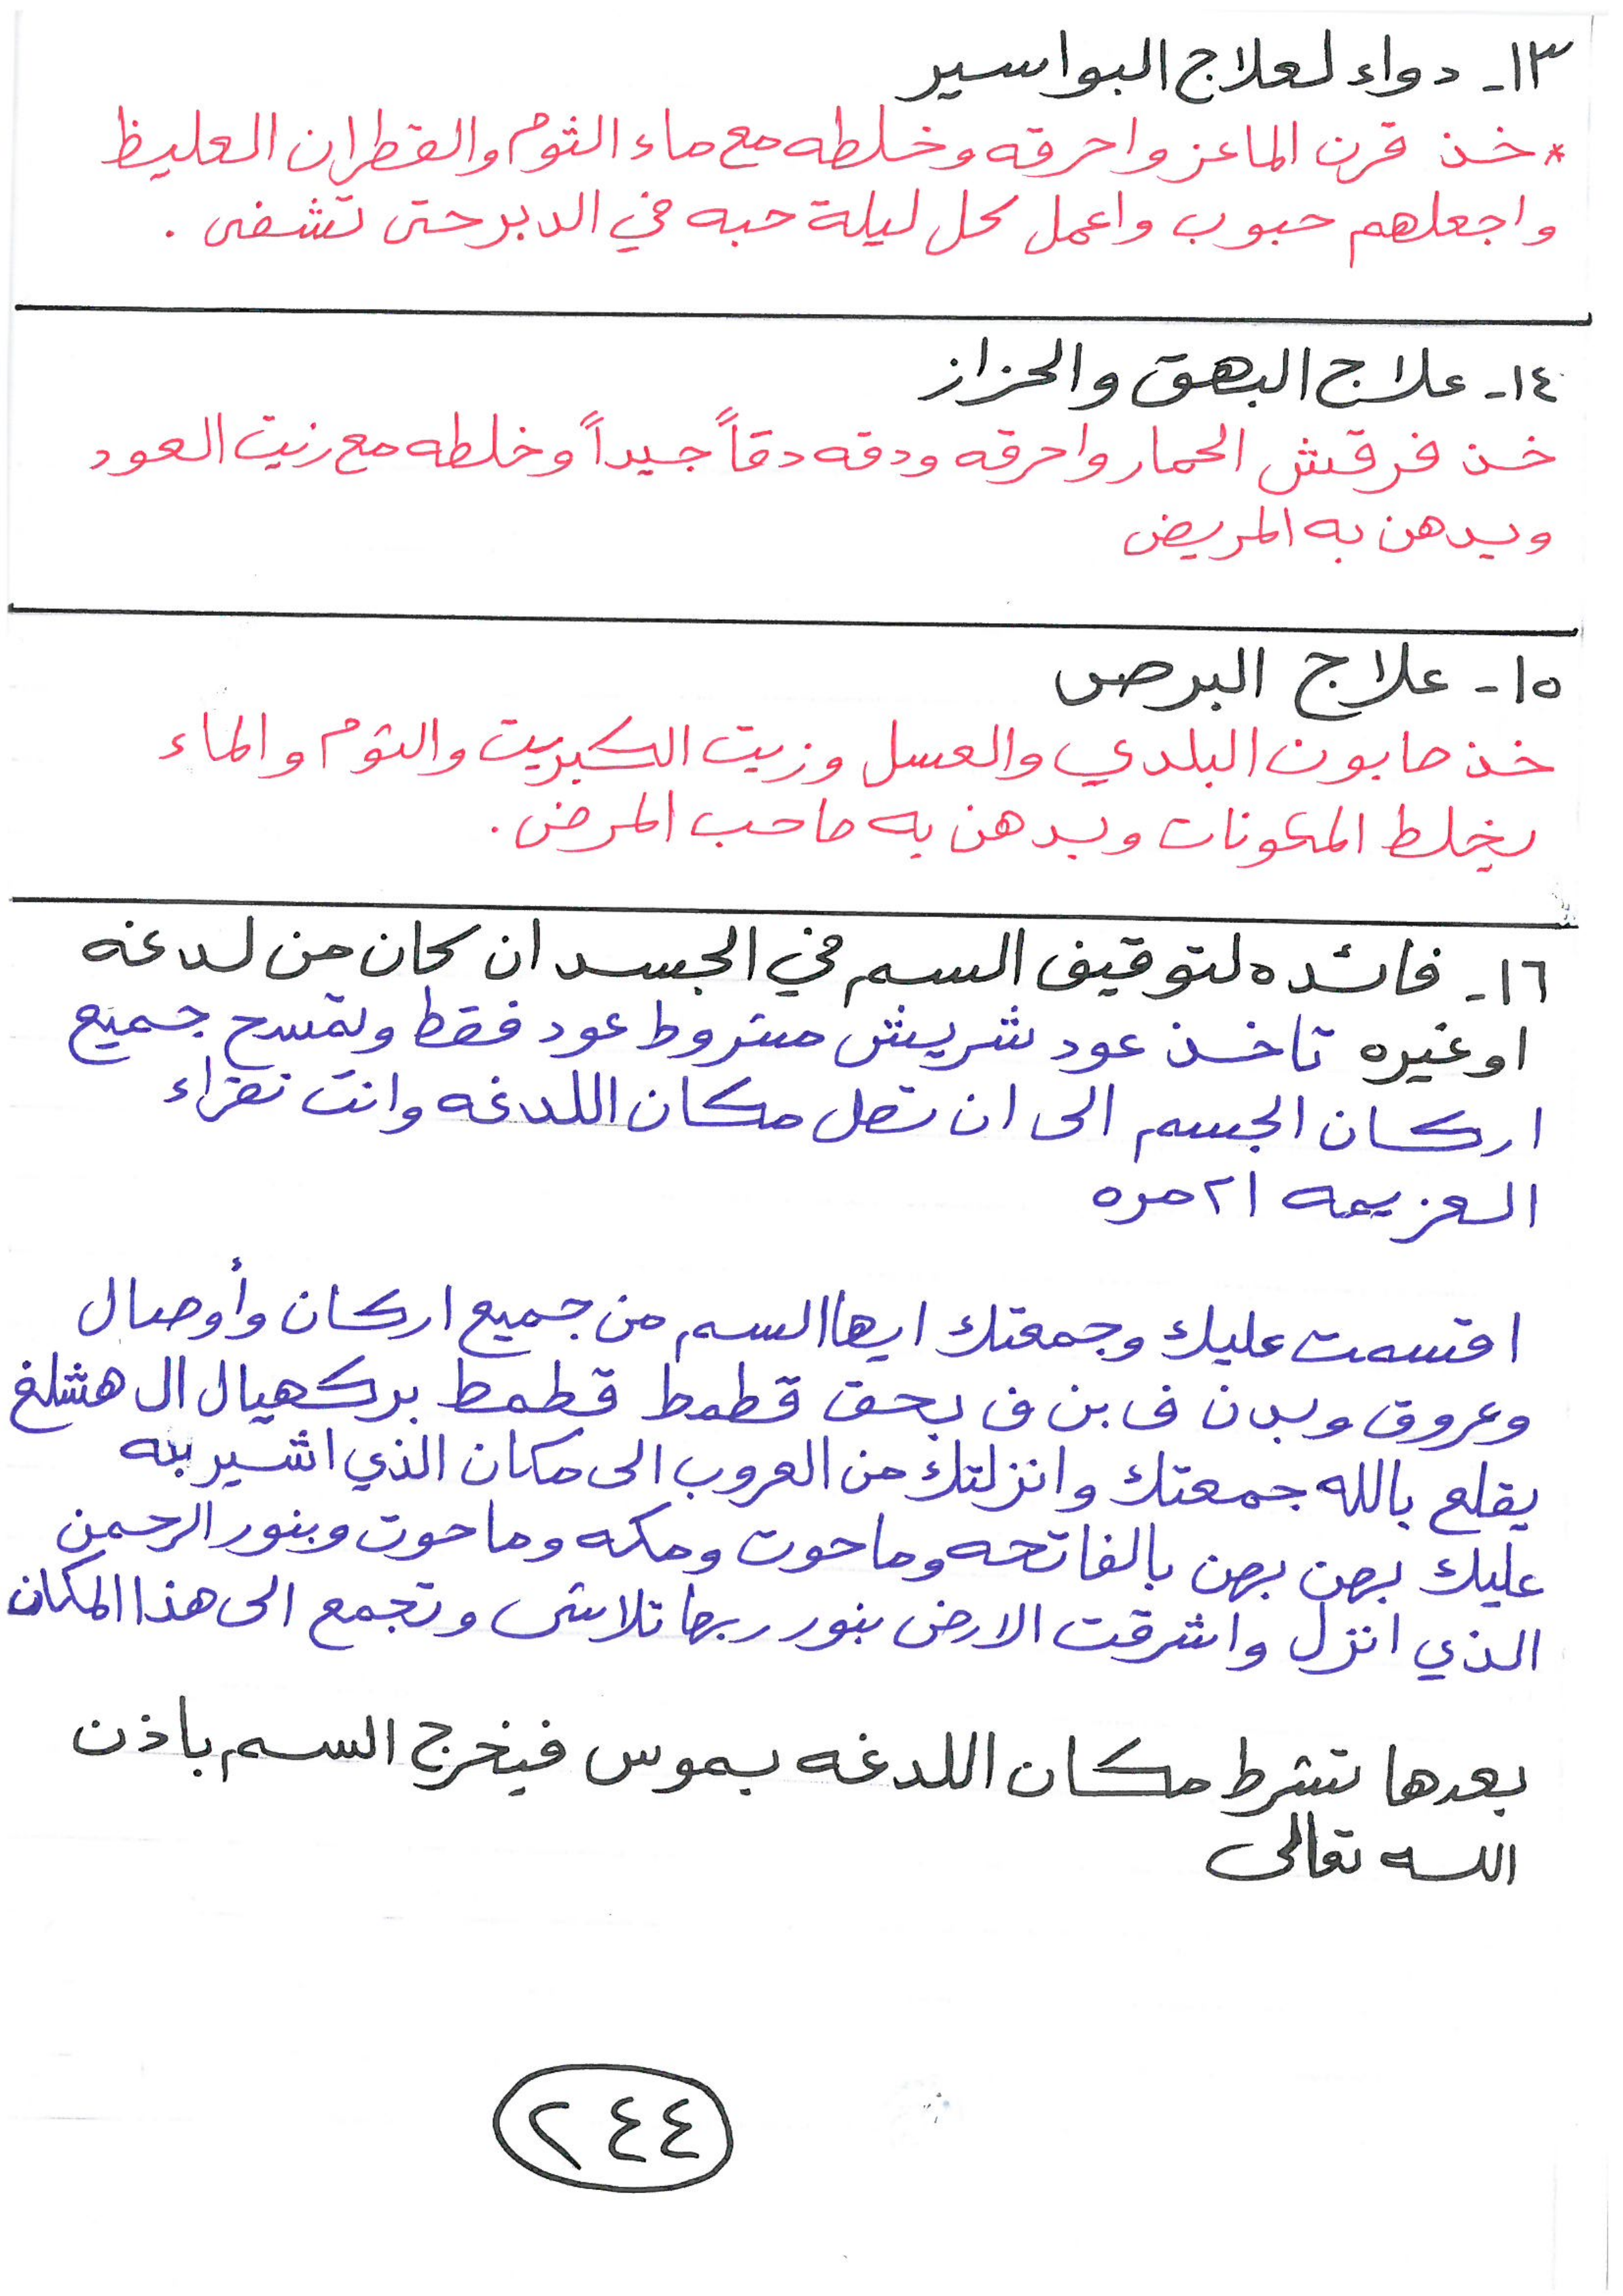 ١٣- دواء لعلاج البواسير
* خذ قرن الماعز واحرقه وخلطه مع ماء الثوم والقطران العليظ
واجعلهم حبوب واعمل كل ليلة حبه في الدبر حتى تشفى .
١٤- علاج البهق والحزاز
خذ فرقش الحمار واحرقه ودقه دقاً جيداً وخلطه مع زيت العود
ويدهن به المريض
١٥- علاج البرص
خذ صابون البلدي والعسل وزيت الكبريت والثوم والماء
يخلط المكونات ويدهن به صاحب المرض .
١٦- فائده لتوقيف السم في الجسد ان كان من لدغه
او غيره تاخذ عود شريش مشروط عود فقط وتمسح جميع
اركان الجسم الى ان تصل مكان اللدغه وانت تقراء
العزيمه ٢١ مره
اقسمت عليك وجمعتك ايها السم من جميع اركان وأوصال
وعروق وبدن ف بن ف بحق قطمط قطمط بركهيال ال هشلغ
يقلع بالله جمعتك وانزلتك من العروب الى مكان الذي اشير به
عليك بهن بهن بالفاتحه وما حوت ومكه وما حوت وبنور الرحمن
الذي انزل واشرقت الارض بنور ربها تلاش وتجمع الى هذا المكان
بعدها تشرط مكان اللدغه بموس فيخرج السم باذن
الله تعالى
٢٤٤